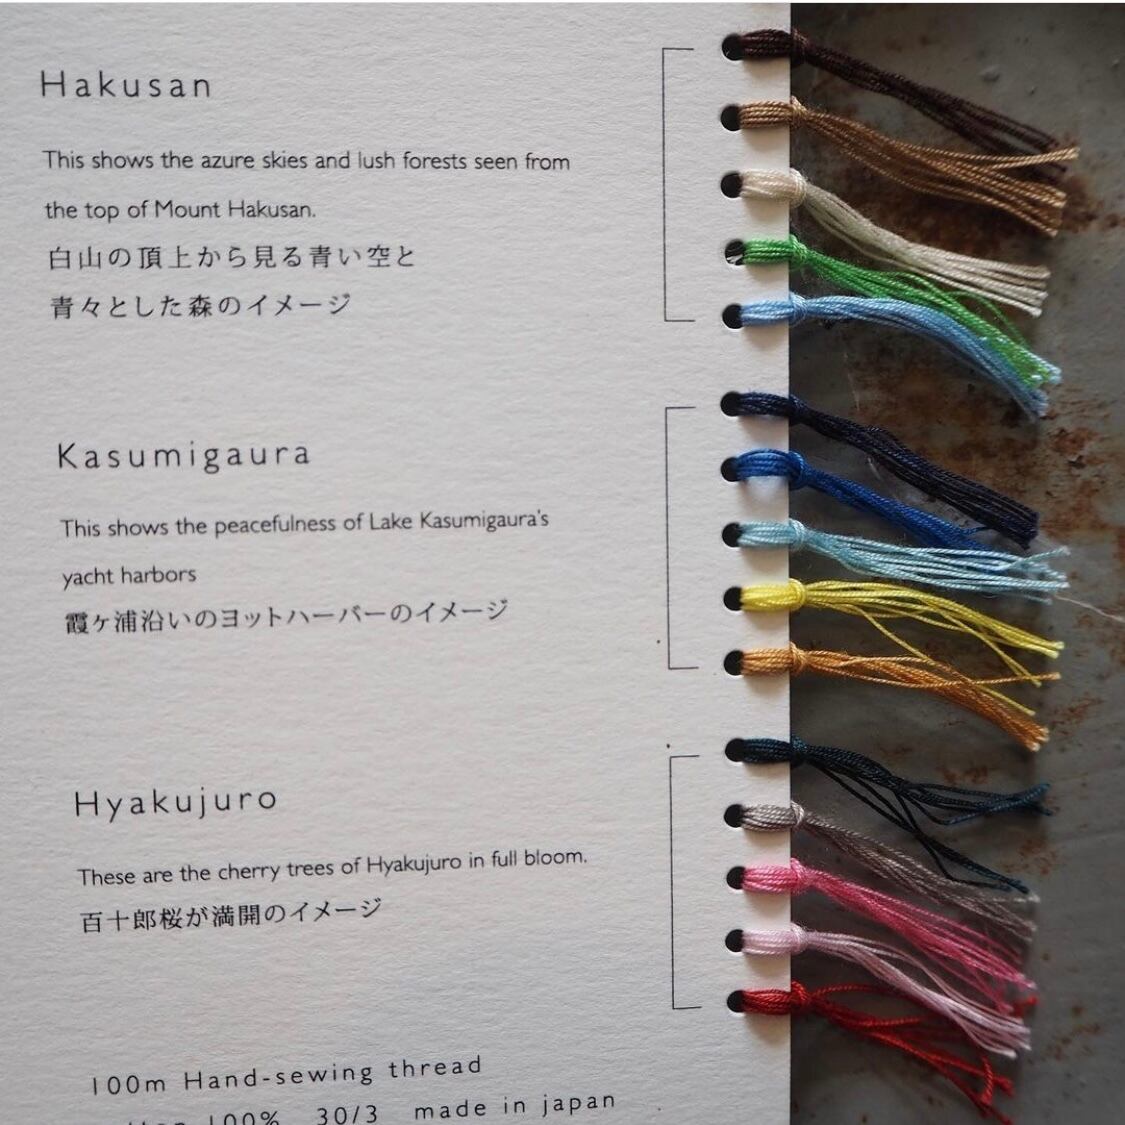 Hakusan
This shows the azure skies and lush forests seen from
the top of Mount Hakusan.
白山の頂上から見る青い空と
青々とした森のイメージ
Kasumigaura
This shows the peacefulness of Lake Kasumigaura's
yacht harbors
霞ヶ浦沿いのヨットハーバーのイメージ
Hyakujuro
These are the cherry trees of Hyakujuro in full bloom.
百十郎桜が満開のイメージ
100m Hand-sewing thread
100% 30/3 made in japan